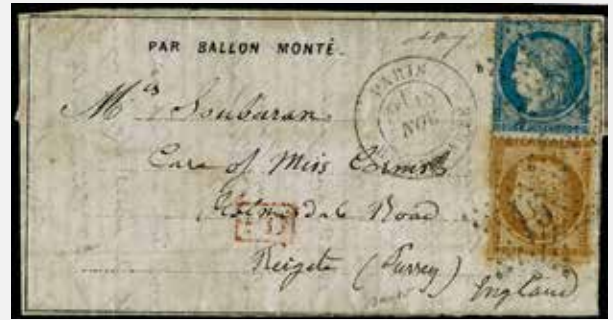 PAR BALLON MONTÉ.
PARIS
NOV
Mis Soubaran
Care of Miss
Road
PD
Reigate (Surrey)
England